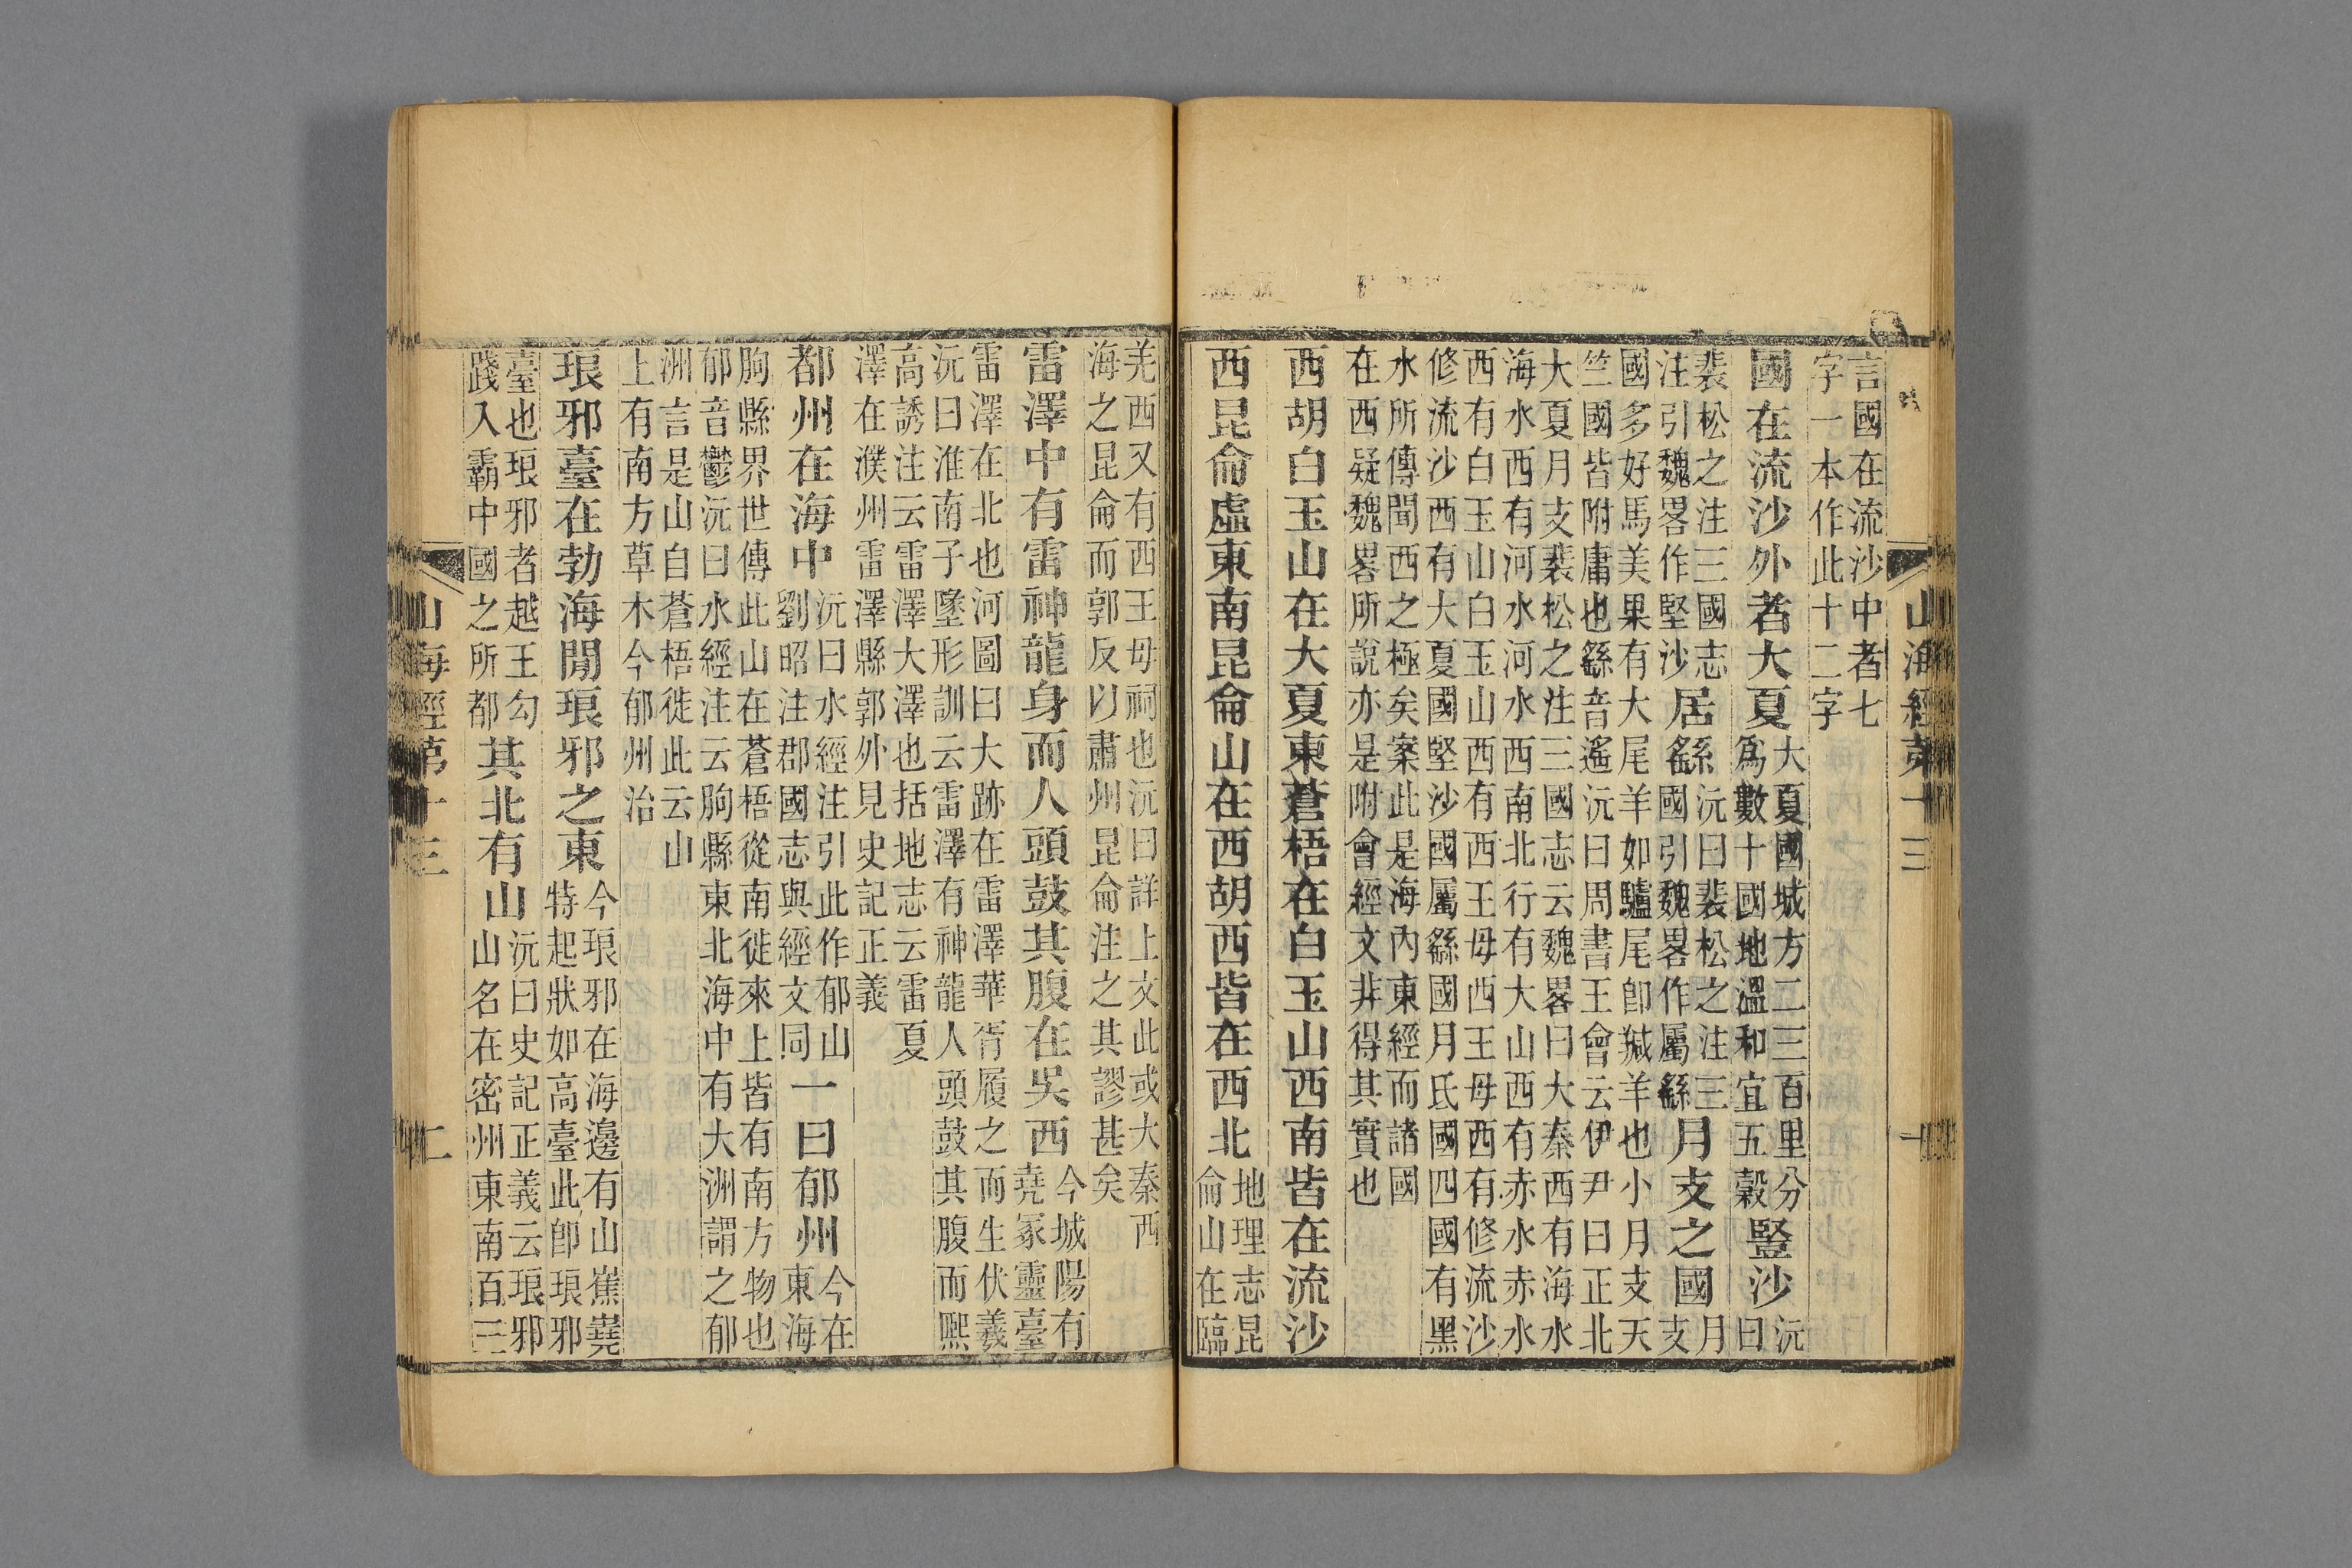 山海經第十三 一
言國在流沙中者七
字一本作此十二字
國在流沙外者大夏
大夏國城方二三百里分
爲數十國地溫和宜五穀
豎沙
沅
曰
裴松之注三國志
注引魏畧作堅沙
居繇
沅曰裴松之注三
國引魏畧作屬繇
月支之國
月
支
國多好馬美果有大尾羊如驢尾卽羬羊也小月支天
竺國皆附庸也繇音遙沅曰周書王會云伊尹曰正北
大夏月支裴松之注三國志云魏畧曰大秦西有海水
海水西有河水河水西南北行有大山西有赤水赤水
西有白玉山白玉山西有西王母西王母西有修流沙
修流沙西有大夏國堅沙國屬繇國月氏國四國有黑
水所傳聞西之極矣案此是海內東經而諸國
在西疑魏畧所說亦是附會經文非得其實也
西胡白玉山在大夏東蒼梧在白玉山西南皆在流沙
西昆侖虛東南昆侖山在西胡西皆在西北
地理志昆
侖山在臨
羌西又有西王母祠也沅曰詳上文此或大秦西
海之昆侖而郭反以肅州昆侖注之其謬甚矣
雷澤中有雷神龍身而人頭鼓其腹在吳西
今城陽有
堯冢靈臺
雷澤在北也河圖曰大跡在雷澤華胥履之而生伏羲
沅曰淮南子墬形訓云雷澤有神龍人頭鼓其腹而熙
高誘注云雷澤大澤也括地志云雷夏
澤在濮州雷澤縣郭外見史記正義
都州在海中
沅曰水經注引此作郁山
劉昭注郡國志與經文同
一曰郁州
今在
東海
朐縣界世傳此山在蒼梧從南徙來上皆有南方物也
郁音鬱沅曰水經注云朐縣東北海中有大洲謂之郁
洲言是山自蒼梧徙此云山
上有南方草木今郁州治
琅邪臺在勃海閒琅邪之東
今琅邪在海邊有山嶕嶢
特起狀如高臺此卽琅邪
臺也琅邪者越王勾
踐入霸中國之所都
其北有山
沅曰史記正義云琅邪
山名在密州東南百三
山海經第十三 二